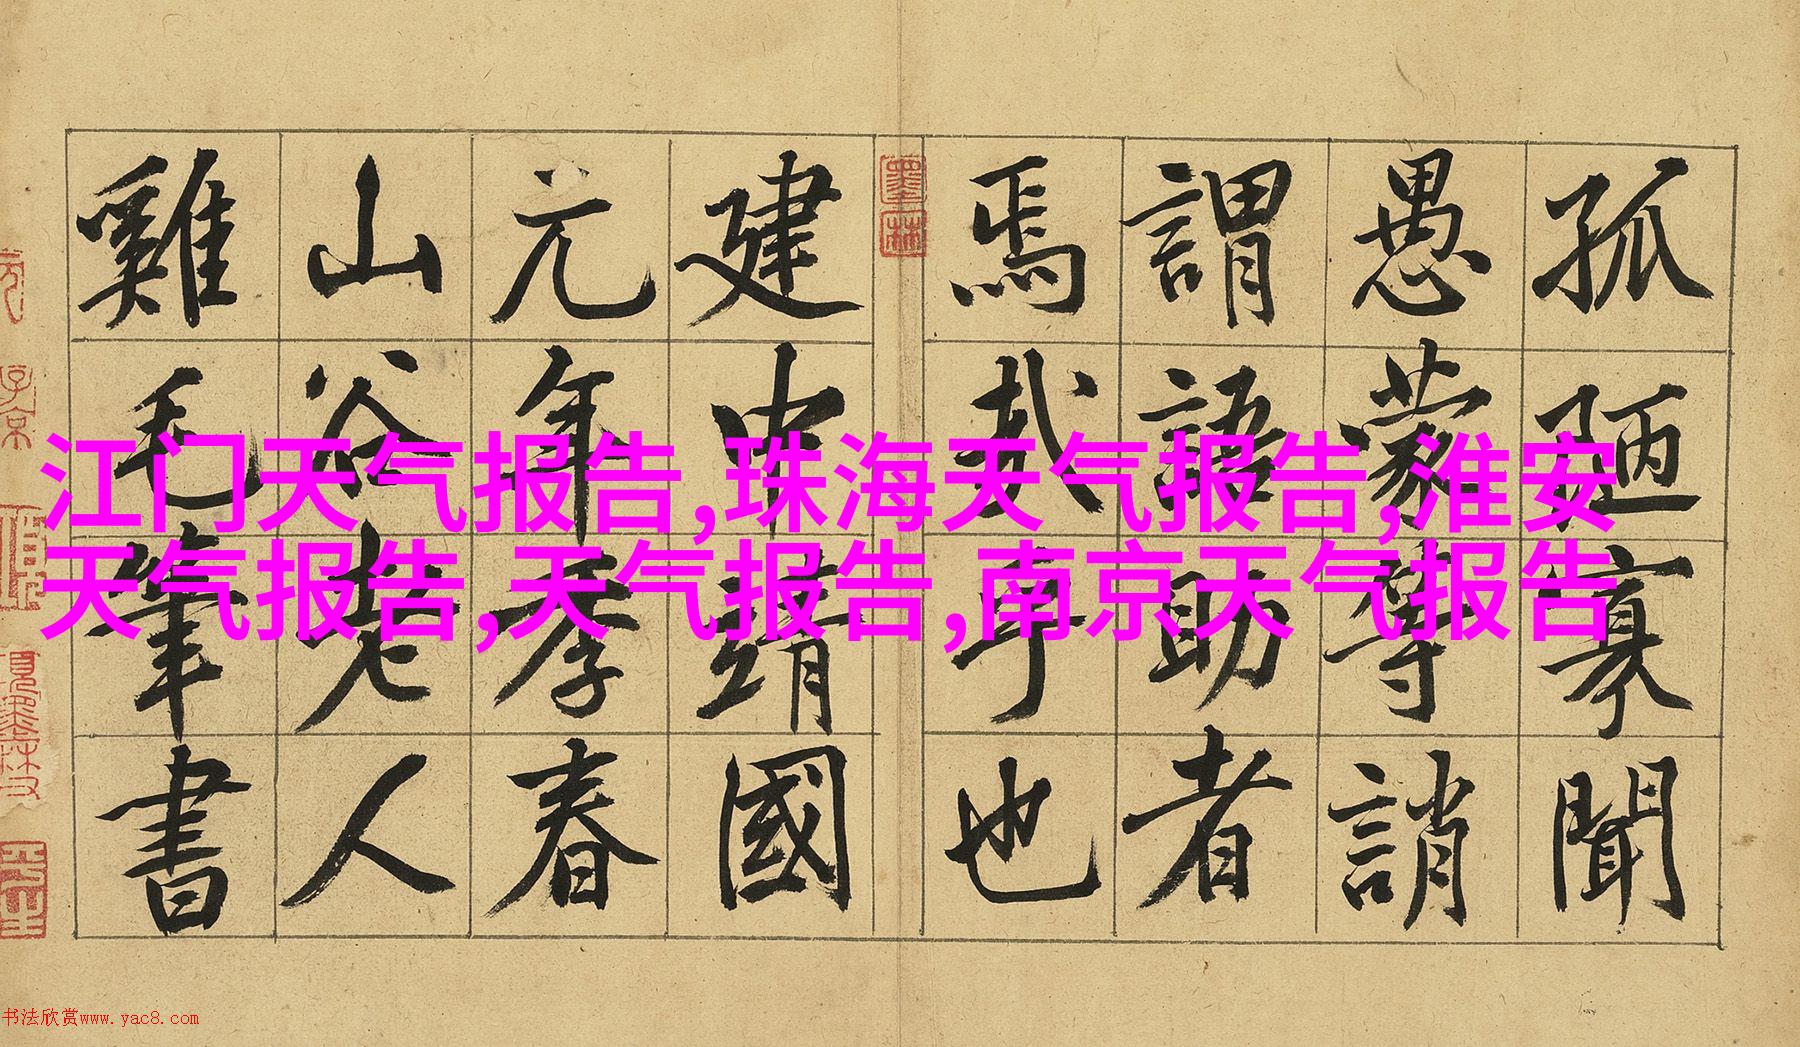 孤陋寡聞
愚蒙等誚
謂語助者
焉哉乎也
墨林
建中靖國
元年季春
山谷老人
雞毛筆書
江门天气报告,珠海天气报告,淮安
天气报告,天气报告,南京天气报告
子京
书法欣赏www.yac8.com